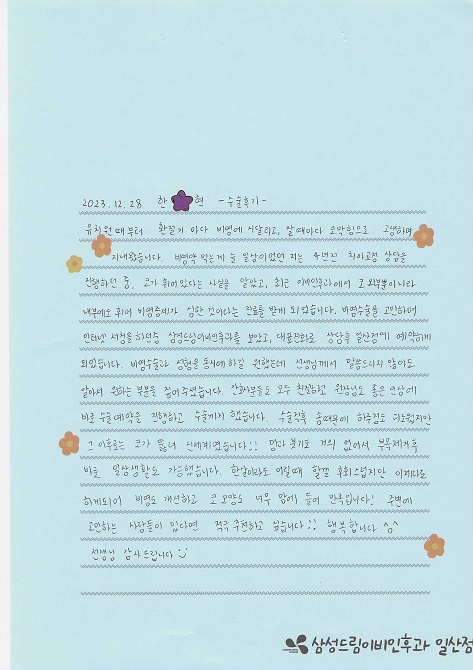 2023.12.28 한 현 -수술후기-
유치원때부터 환절기 마다 비염에 시달리고, 잘때마다 코막힘으로 고생하며
지내왔습니다. 비염약 먹는게 늘 일상이었던 저는 4년전 치아교정 상담을
진행하던 중, 코가 휘어있다는 사실을 알았고, 최근 이비인후과에서 코 외부뿐아니라
내부에도 휘어 비염증세가 심한 것이라는 진료를 받게 되었습니다. 비염수술을 고민하며
인터넷 서칭을 하던중 삼성드림이비인후과를 보았고, 대표전화로 상담후 일산점에 예약하게
되었습니다. 비염수술과 성형을 동시에 하길 원했는데 선생님께서 말씀드리지 않아도
알아서 원하는 부분을 짚어주셨습니다. 간호사분들도 모두 친절하고 원장님도 좋은 인상에
바로 수술예약을 진행하고 수술까지 했습니다. 수술직후 솜때문에 하루정도 괴로웠지만
그 이후로는 코가 뚫려 신세계였습니다!! 멍과 붓기도 거의 없어서 부목제거후
바로 일상생활도 가능했습니다. 한살이라도 어릴때 할껄 후회스럽지만 이제라도
하게되어 비염도 개선하고 코모양도 너무 맘에 들어 만족합니다! 주변에
고민하는 사람들이 있다면 적극 추천하고 싶습니다!! 행복합니다 ^^
선생님 감사드립니다 :)
삼성드림이비인후과 일산점